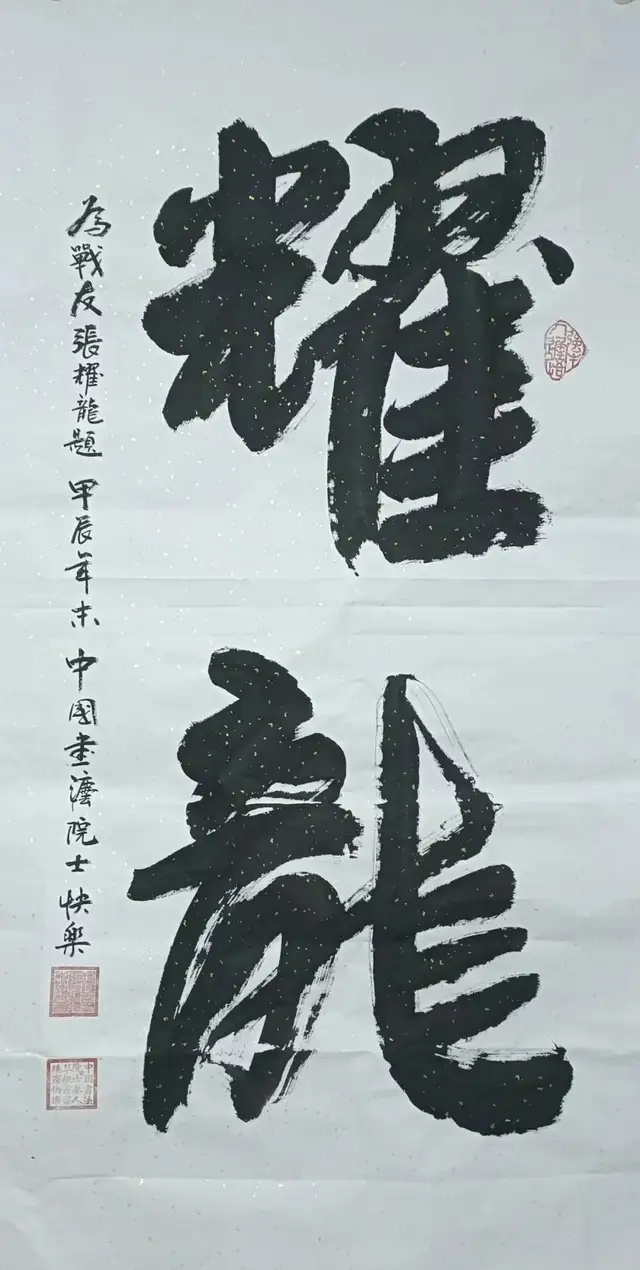 耀龍
為戰友張耀龍題 甲辰年末 中國書法院士 快樂